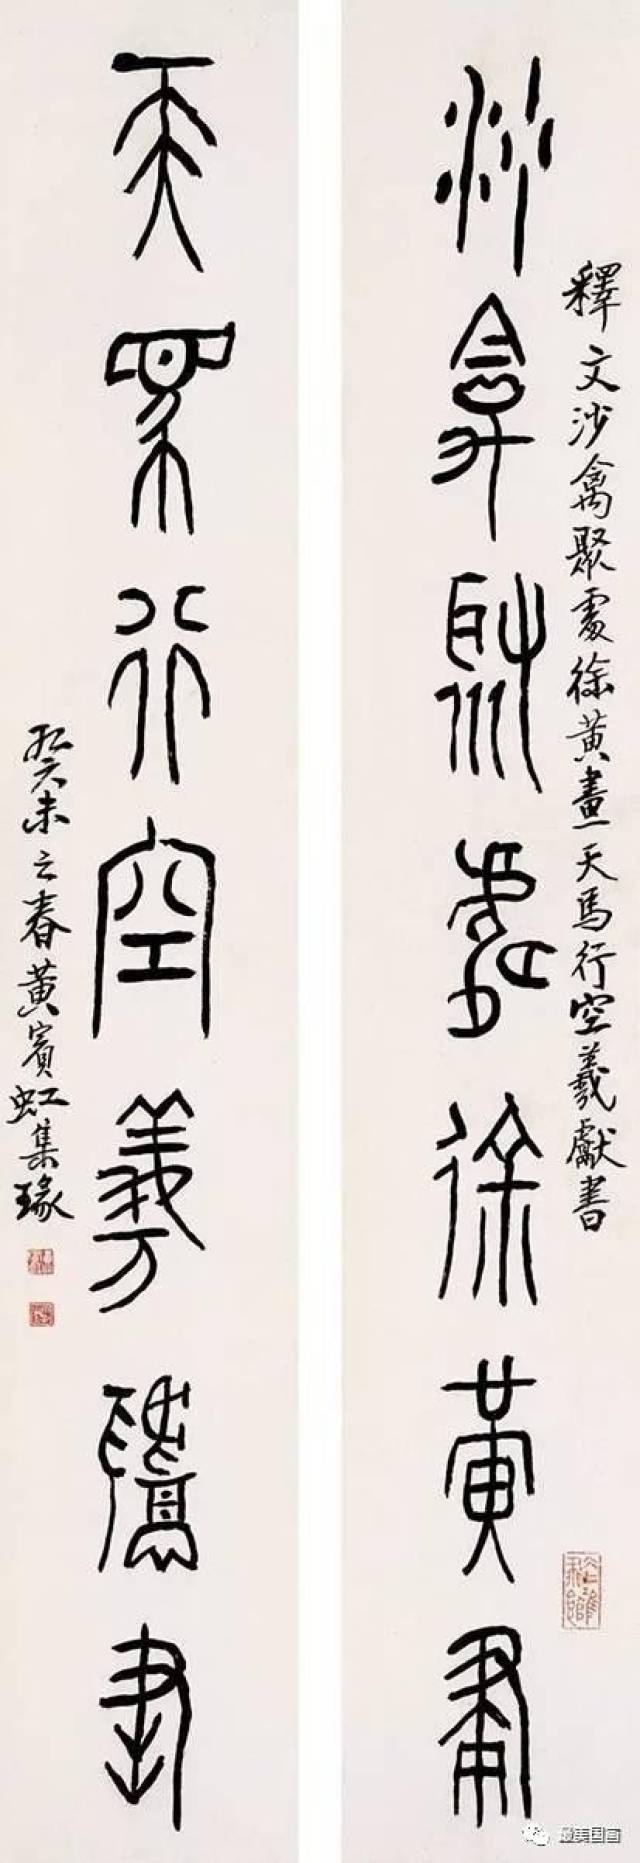 沙禽聚處徐黃畫
釋文沙禽聚處徐黃畫天馬行空羲獻書
天馬行空羲獻書
癸未之春黃賓虹集瑑
最美国画